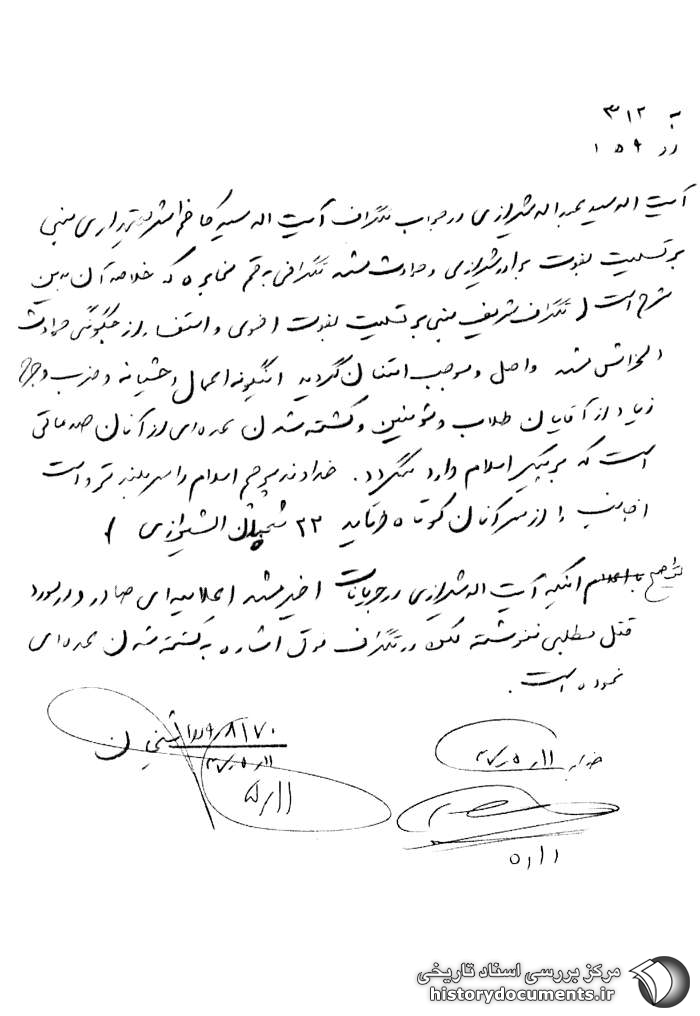 به ۳۱۲
از ۹ ه ۱
آیت اله سید عبداله شیرازی در جواب تلگراف آیت اله سید کاظم شریعتمداری مبنی
بر تسلیت بفوت برادر شیرازی و حوادث مشهد تلگرافی به قم مخابره که خلاصه آن بدین
شرح است ( تلگراف شریف مبنی بر تسلیت بفوت اخوی و استفسار از چگونگی حوادث
دلخراش مشهد واصل و موجب امتنان گردید اینگونه اعمال وحشیانه و ضرب و جرح
زیاد از آقایان طلاب و مؤمنین و کشته شدن عده‌ای از آنان صدماتی
است که بر پیکر اسلام وارد میگردد. خداوند پرچم اسلام را سربلند تر و دست
اجانب را از سر آنان کوتاه فرماید ۲۳ شعبان الشیرازی )
توضیح اینکه آیت اله شیرازی در جریانات اخیر مشهد اعلامیه‌ای صادر و در مورد
قتل مطلبی ننوشته لکن در تلگراف فوق اشاره به کشته شدن عده‌ای
نموده است.
۹/۸۱۷۰
۱۱/۵/۳۷
۱۱/۵
۱۱/۵/۳۷
۱۱/۵
مرکز بررسی اسناد تاریخی
historydocuments.ir